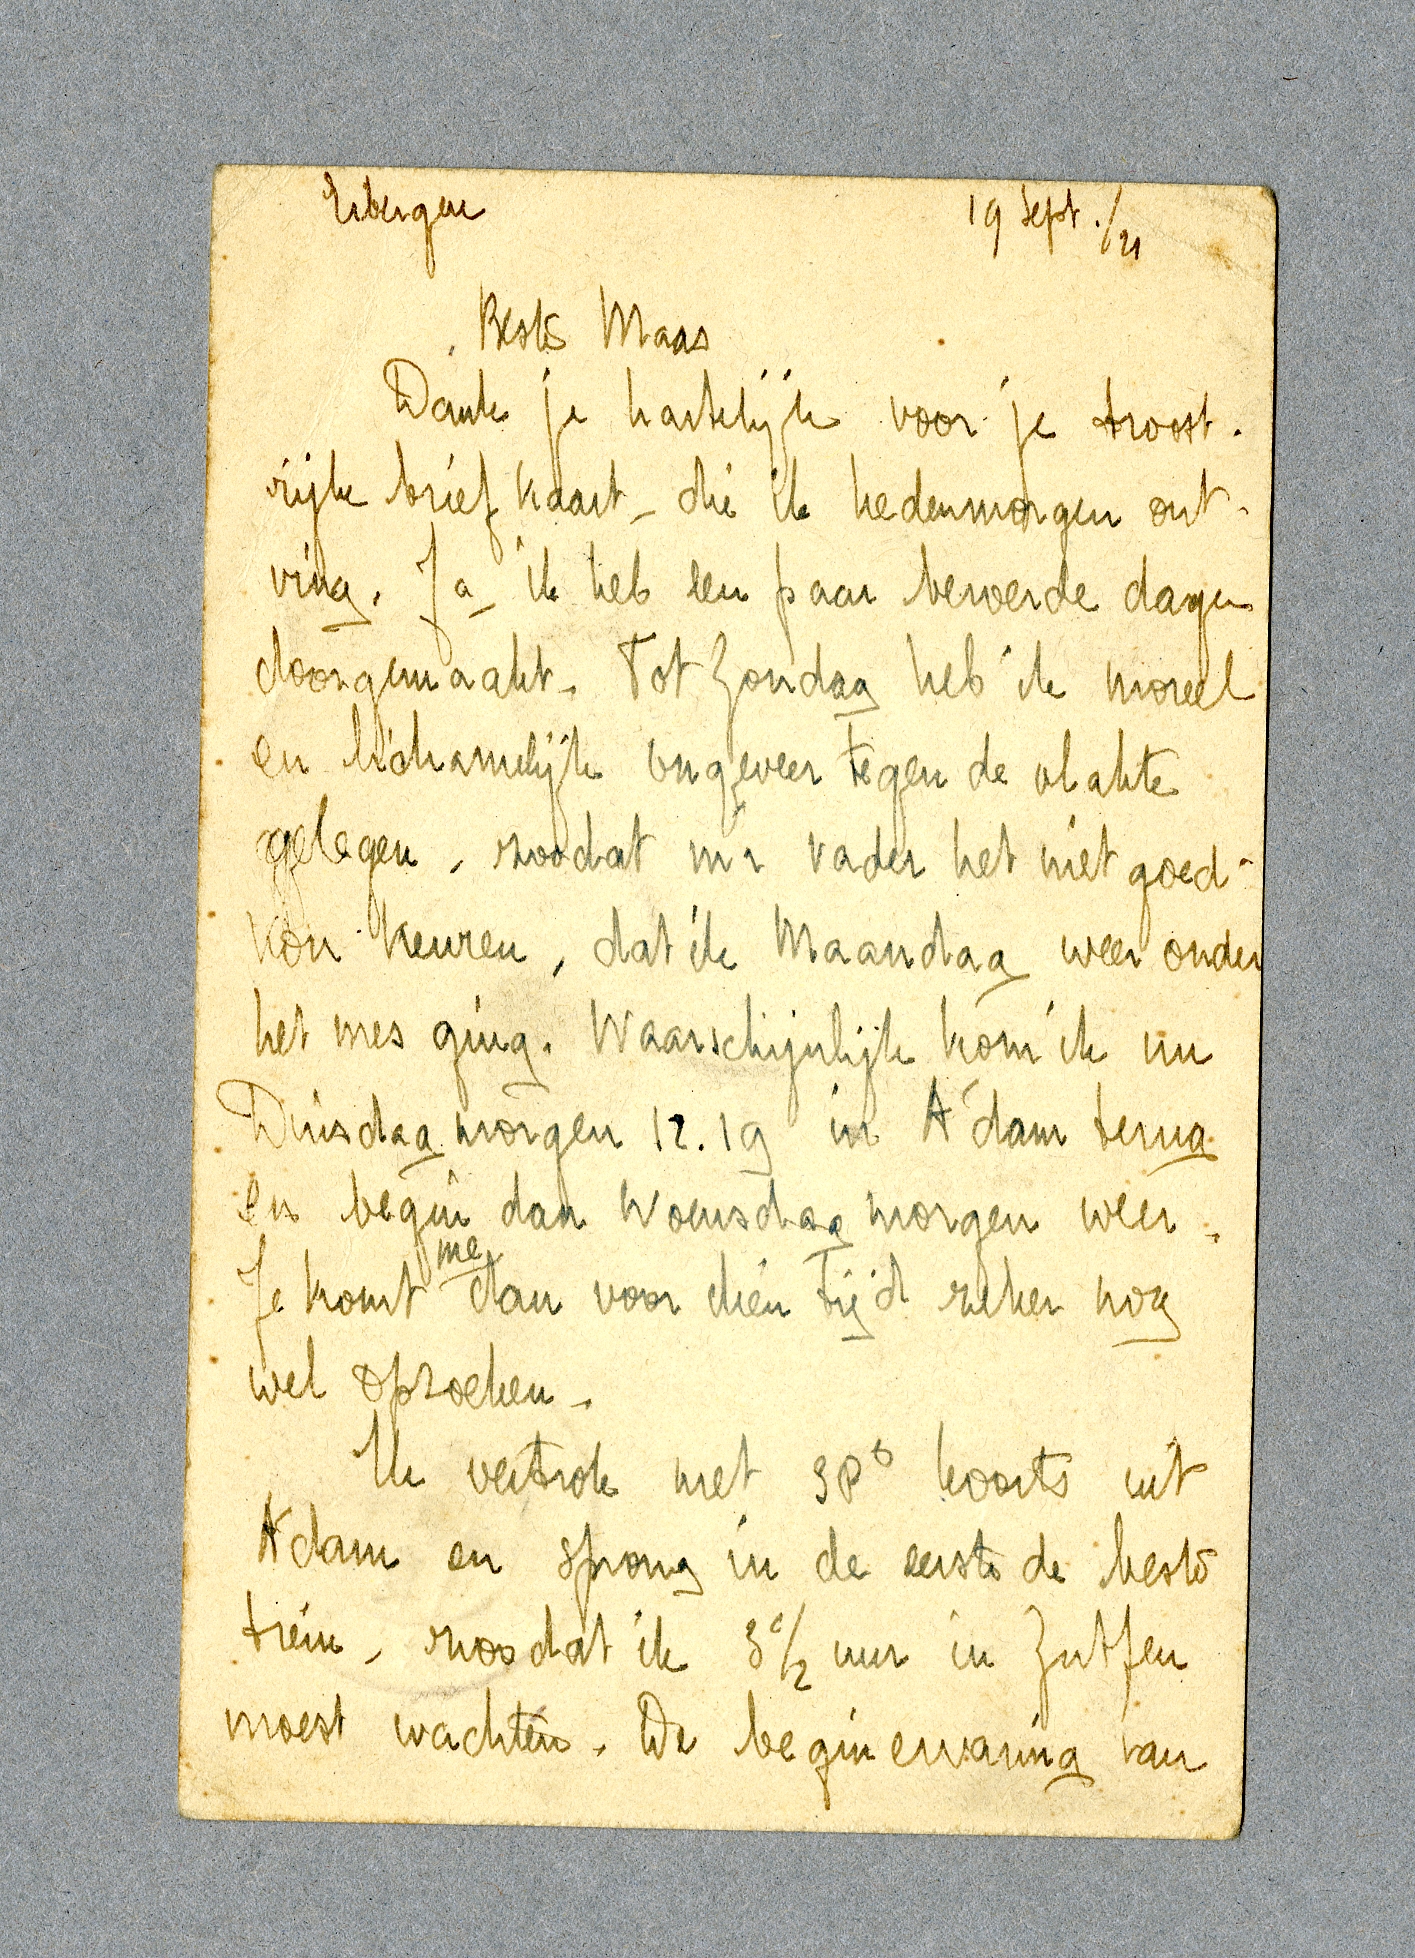 Eibergen 19 Sept./21
Beste Maas
Dank je hartelijk voor je troost-
rijke briefkaart, die ik hedenmorgen ont-
ving. Ja, ik heb een paar beroerde dagen
doorgemaakt. Tot Zondag heb ik moreel
en lichamelijk ongeveer tegen de vlakte
gelegen, zoodat m'n vader het niet goed-
kon keuren, dat ik Maandag weer onder
het mes ging. Waarschijnlijk kom ik nu
Dinsdagmorgen 12.19 in A'dam terug
en begin dan Woensdagmorgen weer.
Je komt me dan voor dien tijd zeker nog
wel opzoeken.
Ik vertrok met 38⁶ koorts uit
A'dam en sprong in de eerste de beste
trein, zoodat ik 3½ uur in Zutfen
moest wachten. De begin ervaring van